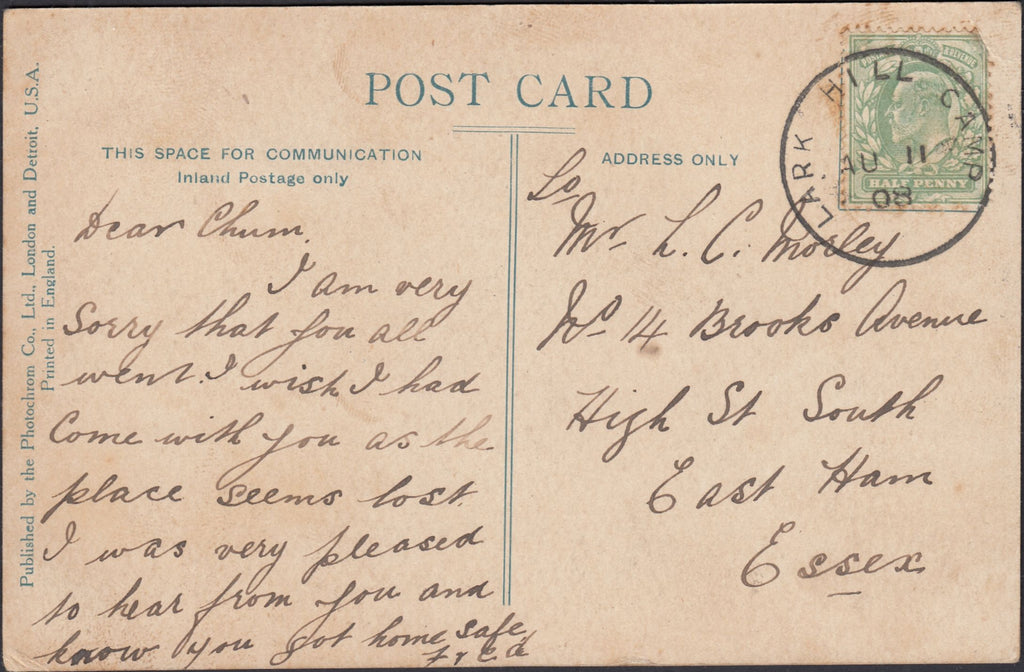 POST CARD
THIS SPACE FOR COMMUNICATION
Inland Postage only
Dear Chum,
I am very
Sorry that you all
went. I wish I had
Come with you as the
place seems lost.
I was very pleased
to hear from you and
know you got home safe
Fred
ADDRESS ONLY
To
Mr. L. C. Morley
No 14 Brooks Avenue
High St South
East Ham
Essex
LARK HILL CAMP
AU 11
08
REVENUE
HALF PENNY
Published by the Photochrom Co., Ltd., London and Detroit, U.S.A.
Printed in England.